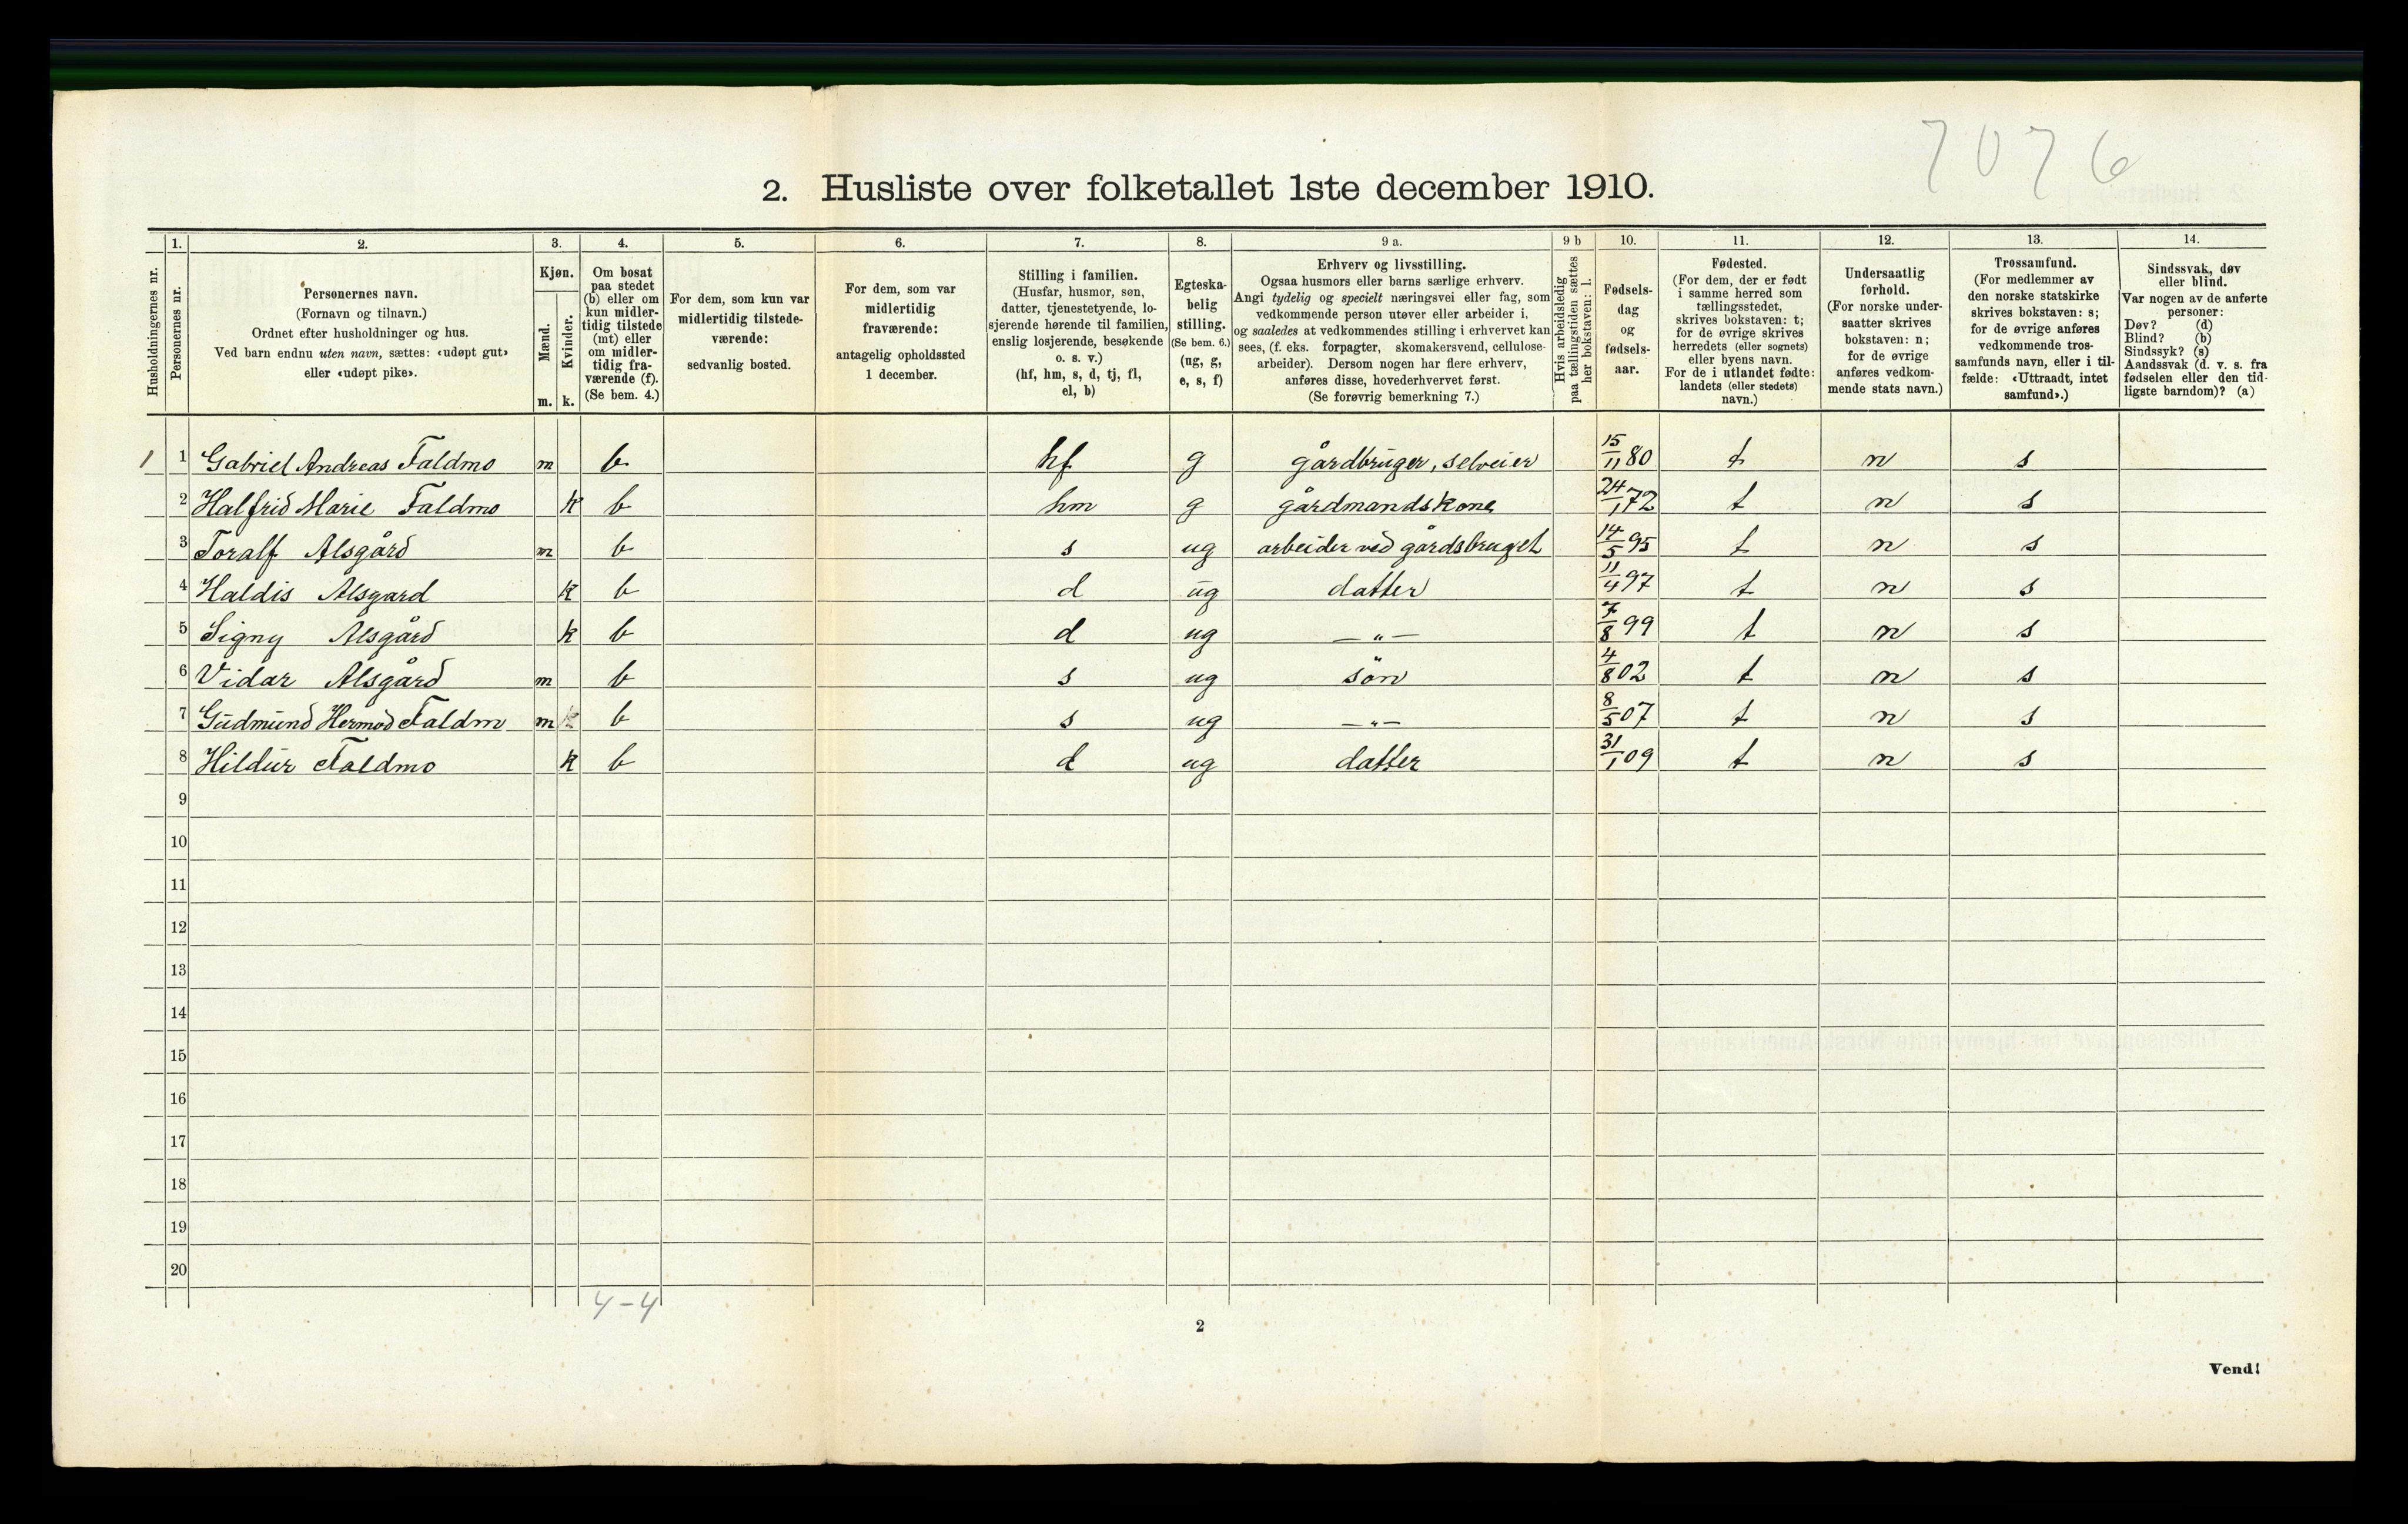 7076
2. Husliste over folketallet 1ste december 1910.
Husholdningernes nr.
1. Personernes nr.
2. Personernes navn.
(Fornavn og tilnavn.)
Ordnet efter husholdninger og hus.
Ved barn endnu uten navn, sættes: «udøpt gut»
eller «udøpt pike».
3. Kjøn.
Mænd. m.
Kvinder. k.
4. Om bosat
paa stedet
(b) eller om
kun midler-
tidig tilstede
(mt) eller
om midler-
tidig fra-
værende (f).
(Se bem. 4.)
5. For dem, som kun var
midlertidig tilstede-
værende:
sedvanlig bosted.
6. For dem, som var
midlertidig
fraværende:
antagelig opholdssted
1 december.
7. Stilling i familien.
(Husfar, husmor, søn,
datter, tjenestetyende, lo-
sjerende hørende til familien,
enslig losjerende, besøkende
o. s. v.)
(hf, hm, s, d, tj, fl,
el, b)
8. Egteska-
belig
stilling.
(Se bem. 6.)
(ug, g,
e, s, f)
9 a. Erhverv og livsstilling.
Ogsaa husmors eller barns særlige erhverv.
Angi tydelig og specielt næringsvei eller fag, som
vedkommende person utøver eller arbeider i,
og saaledes at vedkommendes stilling i erhvervet kan
sees, (f. eks. forpagter, skomakersvend, cellulose-
arbeider). Dersom nogen har flere erhverv,
anføres disse, hovederhvervet først.
(Se forøvrig bemerkning 7.)
9 b Hvis arbeidsledig
paa tællingstiden sættes
her bokstaven: l.
10. Fødsels-
dag
og
fødsels-
aar.
11. Fødested.
(For dem, der er født
i samme herred som
tællingsstedet,
skrives bokstaven: t;
for de øvrige skrives
herredets (eller sognets)
eller byens navn.
For de i utlandet fødte:
landets (eller stedets)
navn.)
12. Undersaatlig
forhold.
(For norske under-
saatter skrives
bokstaven: n;
for de øvrige
anføres vedkom-
mende stats navn.)
13. Trossamfund.
(For medlemmer av
den norske statskirke
skrives bokstaven: s;
for de øvrige anføres
vedkommende tros-
samfunds navn, eller i til-
fælde: «Uttraadt, intet
samfund».)
14. Sindssvak, døv
eller blind.
Var nogen av de anførte
personer:
Døv? (d)
Blind? (b)
Sindssyk? (s)
Aandssvak (d. v. s. fra
fødselen eller den tid-
ligste barndom)? (a)
1 1 Gabriel Andreas Faldmo m b hf g gårdbruger, selveier 15/11 80 t n s
2 Halfrid Marie Faldmo k b hm g gårdmandskone 24/1 72 t n s
3 Toralf Alsgård m b s ug arbeider ved gårdsbruget 14/5 95 t n s
4 Haldis Alsgard k b d ug datter 11/4 97 t n s
5 Signy Alsgård k b d ug —„— 7/8 99 t n s
6 Vidar Alsgård m b s ug søn 4/8 02 t n s
7 Gudmund Hermod Faldm m k b s ug —„— 8/5 07 t n s
8 Hildur Faldmo k b d ug datter 31/1 09 t n s
9
10
11
12
13
14
15
16
17
18
19
20
4-4
2
Vend!